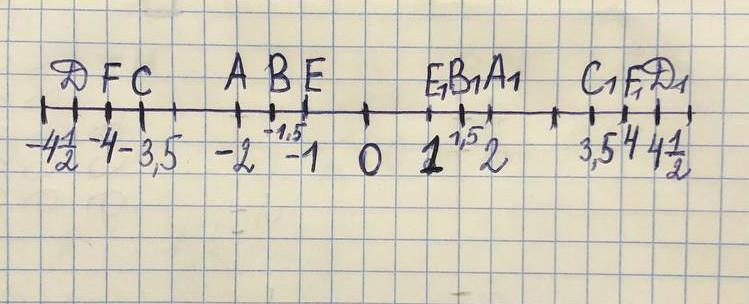 D F C A B E E₁ B₁ A₁ C₁ F₁ D₁
-4 1/2 -4 -3,5 -2 -1,5 -1 0 1 1,5 2 3,5 4 4 1/2